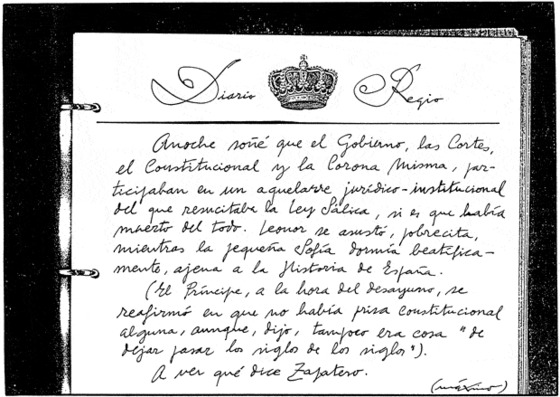 Diario Regio
Anoche soñé que el Gobierno, las Cortes,
el Constitucional y la Corona Misma, par-
ticipaban en un aquelarre jurídico-institucional
del que resucitaba la Ley Sálica, si es que había
muerto del todo. Leonor se asustó, pobrecita,
mientras la pequeña Sofía dormía beatífica-
mente, ajena a la Historia de España.
(El Príncipe, a la hora del desayuno, se
reafirmó en que no había prisa constitucional
alguna, aunque, dijo, tampoco era cosa "de
dejar pasar los siglos de los siglos").
A ver qué dice Zapatero.
(máximo)